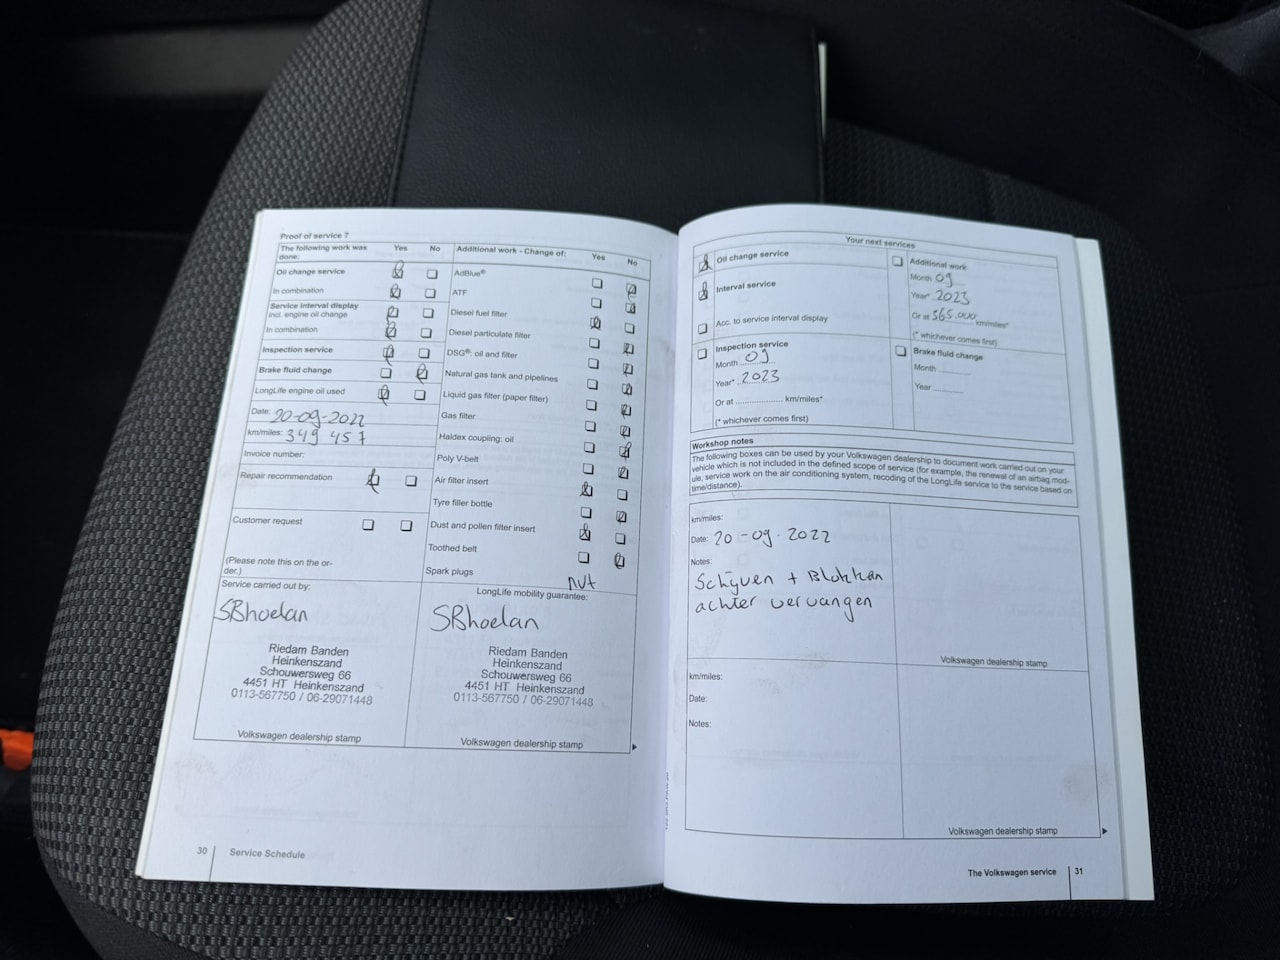 Proof of service 7
The following work was done: Yes No
Oil change service
In combination
Service interval display
incl. engine oil change
In combination
Inspection service
Brake fluid change
LongLife engine oil used
Date: 20-09-2022
km/miles: 349 457
Invoice number:
Repair recommendation
Customer request
(Please note this on the or-
der.)
Additional work - Change of: Yes No
AdBlue®
ATF
Diesel fuel filter
Diesel particulate filter
DSG®: oil and filter
Natural gas tank and pipelines
Liquid gas filter (paper filter)
Gas filter
Haldex coupling: oil
Poly V-belt
Air filter insert
Tyre filler bottle
Dust and pollen filter insert
Toothed belt
Spark plugs nvt
Service carried out by:
SBhoelan
Riedam Banden
Heinkenszand
Schouwersweg 66
4451 HT Heinkenszand
0113-567750 / 06-29071448
Volkswagen dealership stamp
LongLife mobility guarantee:
SBhoelan
Riedam Banden
Heinkenszand
Schouwersweg 66
4451 HT Heinkenszand
0113-567750 / 06-29071448
Volkswagen dealership stamp
30 Service Schedule
Your next services
Oil change service
Interval service
Acc. to service interval display
Additional work
Month 09
Year* 2023
Or at 365.000 km/miles*
(* whichever comes first)
Inspection service
Month 09
Year* 2023
Or at .................... km/miles*
(* whichever comes first)
Brake fluid change
Month ..........
Year ............
Workshop notes
The following boxes can be used by your Volkswagen dealership to document work carried out on your
vehicle which is not included in the defined scope of service (for example, the renewal of an airbag mod-
ule, service work on the air conditioning system, recoding of the LongLife service to the service based on
time/distance).
km/miles:
Date: 20-09-2022
Notes:
Schijven + Blokken
achter vervangen
Volkswagen dealership stamp
km/miles:
Date:
Notes:
Volkswagen dealership stamp
The Volkswagen service 31